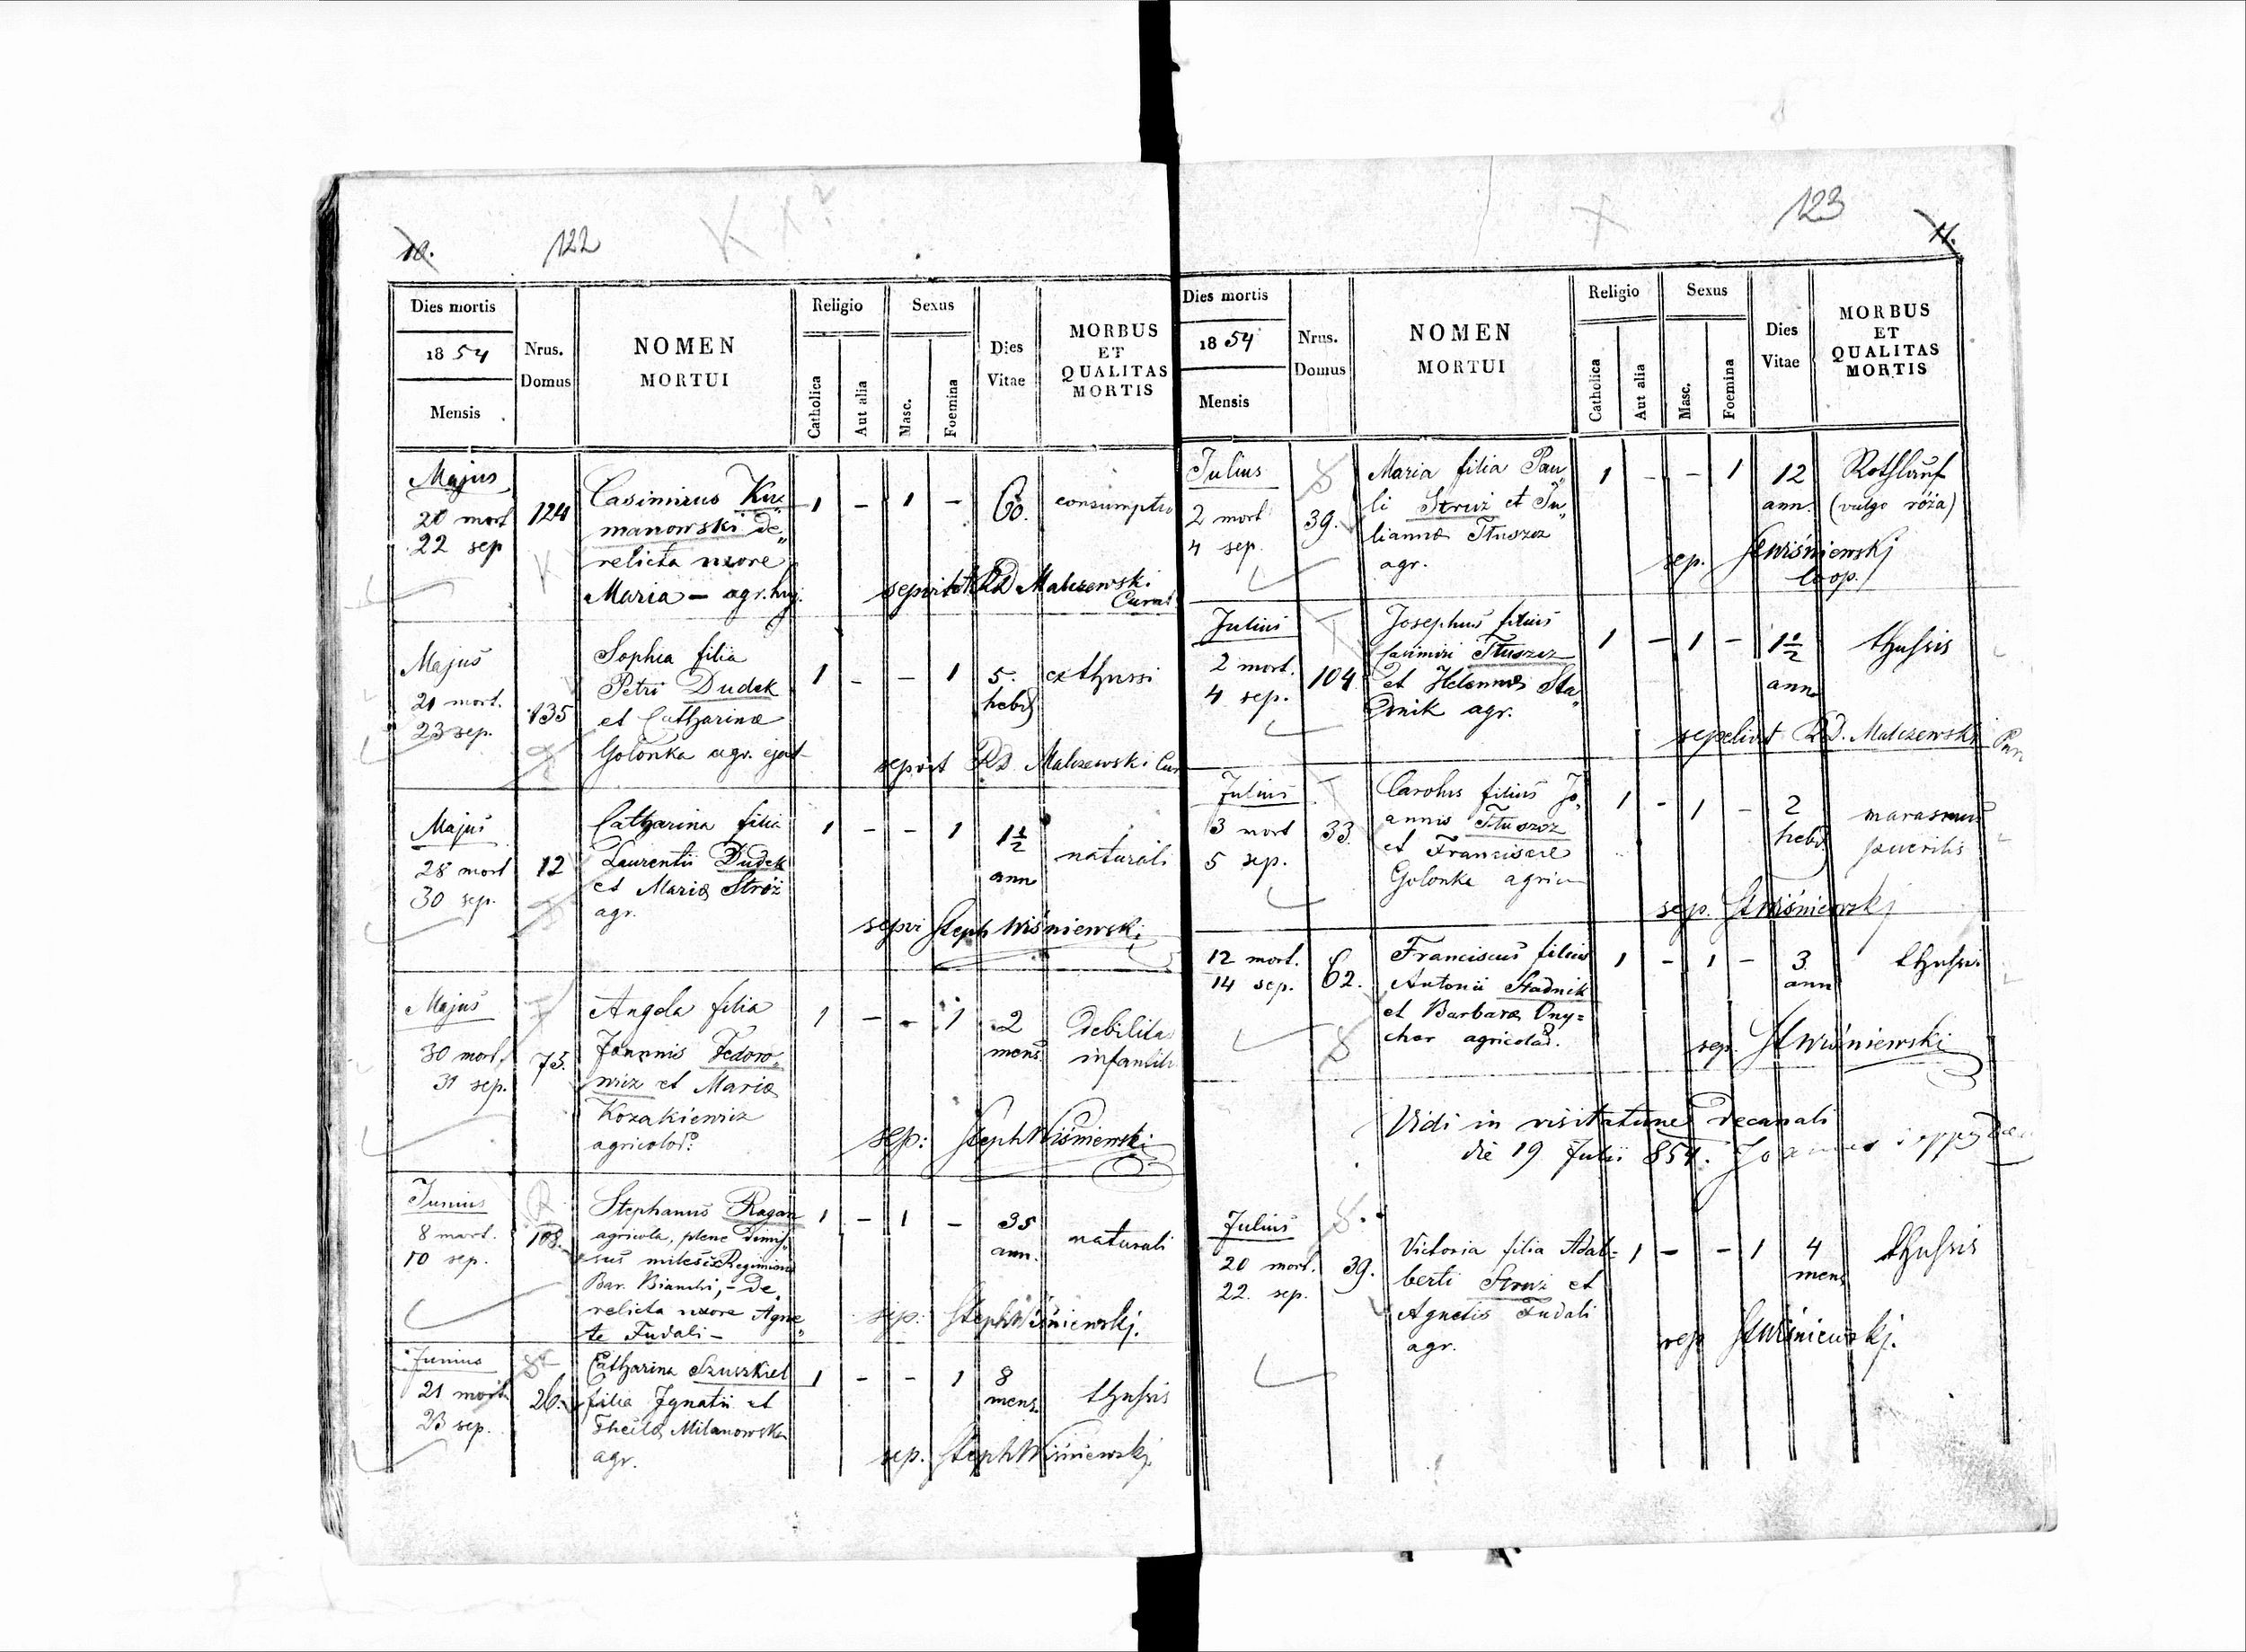 10.
122
Dies mortis
1854
Mensis
Nrus.
Domus
NOMEN
MORTUI
Religio
Catholica
Aut alia
Sexus
Masc.
Foemina
Dies
Vitae
MORBUS
ET
QUALITAS
MORTIS
Majus
20 mort
22 sep
124
Casimirus
manowski de„
relicta uxore
Maria – agr. huj.
1 – 1 –
60.
consumptio
Malczewski
Curat
Majus
21 mort.
23 sep.
135
Sophia filia
Petri Dudek
et Catharinae
Golonka agr. ejusd
1 – – 1
5.
hebd
ex thussi
sepvit RD Malczewski Cur
Majus
28 mort
30 sep.
12
Catharina filia
Laurentii Dudek
et Mariae Stróż
agr.
1 – – 1
1 1/2
ann
naturali
sepvi Steph Wiśniewski
Majus
30 mort.
31 sep.
75.
Angela filia
Joannis Fedoro„
wicz et Mariae
Kozakiewicz
agricolar:
1 – – 1
2
mens
debilitas
infantilis
sep: Steph Wiśniewski
Junius
8 mort.
10 sep.
108.
Stephanus Ragan
agricola, plene dimis„
sus miles ex Regimine
Bar. Bianchi, – de„
relicta uxore Agne„
te Fudali –
1 – 1 –
35
ann.
naturali
sep: Steph Wiśniewskj.
Junius
21 mort.
23 sep.
26.
Catharina Szuszkiel
filia Ignatii et
Theclae Milanowska
agr.
1 – – 1
8
mens.
thussis
sep. Steph Wiśniewskj.
123
11.
Dies mortis
1854
Mensis
Nrus.
Domus
NOMEN
MORTUI
Religio
Catholica
Aut alia
Sexus
Masc.
Foemina
Dies
Vitae
MORBUS
ET
QUALITAS
MORTIS
Julius
2 mort
4 sep.
39.
Maria filia Pau„
li Struż et Ju„
liannae Tłuszcz
agr.
1 – – 1
12
ann.
Rothlauf
(vulgo róża)
sep. St Wiśniewskj
Coop.
Julius
2 mort.
4 sep.
104
Josephus filius
Casimiri Tłuszcz
et Helennae Sta„
dnik agr.
1 – 1 –
1 1/2
ann
thussis
sepelivit RD. Malczewski
Julius
3 mort
5 sep.
33.
Carolus filius Jo„
annis Tłuszcz
et Franciscae
Golonka
1 – 1 –
2
hebd
marasmus
puerilis
sep. St Wiśniewskj
12 mort.
14 sep.
62.
Franciscus filius
Antonii Stadnik
et Barbarae Ony=
cher agricolar.
1 – 1 –
3
ann
thussis
sep. St Wiśniewski
Vidi in visitatione decanali
die 19 Julii 854.
Julius
20 mort.
22. sep.
39.
Victoria filia Adal=
berti Struż et
Agnetis Fudali
agr.
1 – – 1
4
mens
thussis
sep St Wiśniewskj.